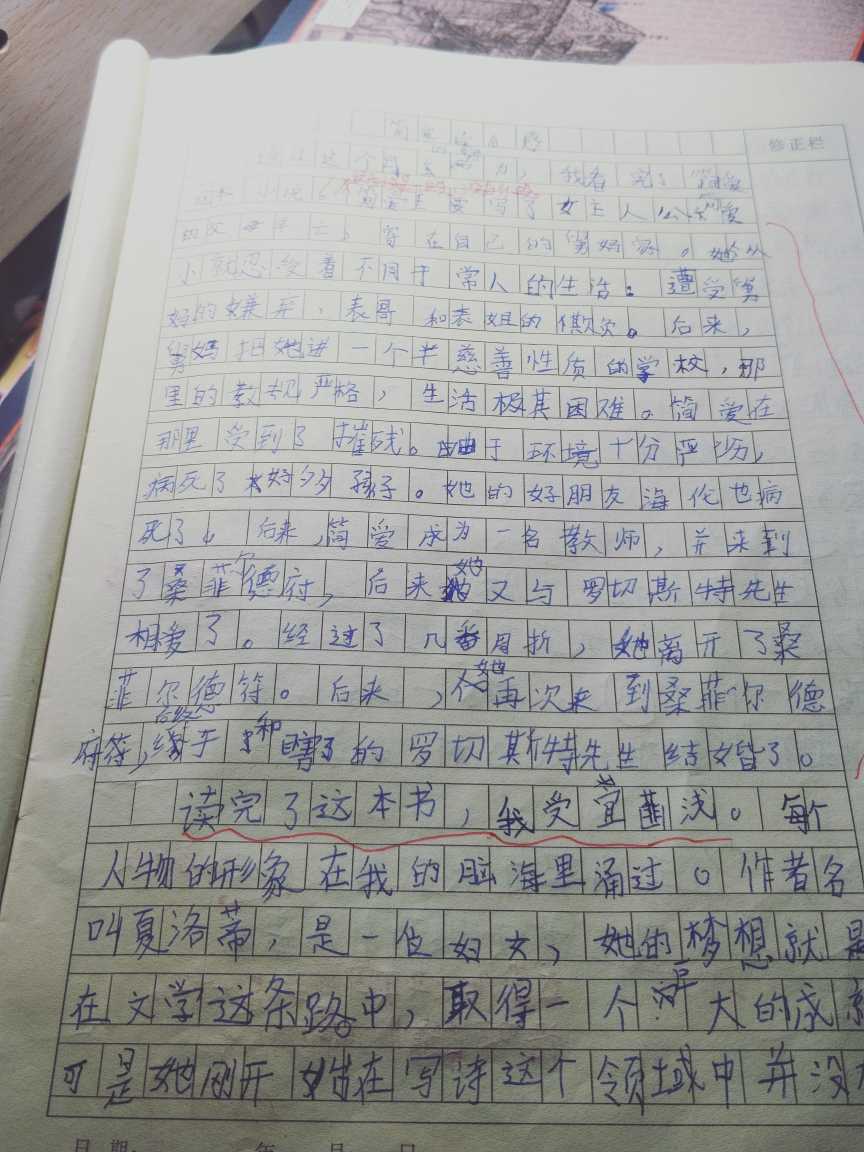 简爱读后感
修正栏
个月 我看完了简爱
简爱主要写了女主人公简爱
父母 死亡, 寄在自己的舅妈家。她从
小就忍受着不同于常人的生活:遭受舅
妈的嫌弃,表哥和表姐的欺负。后来,
舅妈把她进一个半慈善性质的学校,那
里的教规严格,生活极其困难。简爱在
那里受到了摧残。由于环境十分严历,
病死了好多孩子。她的好朋友海伦也病
死了。后来,简爱成为一名教师,并来到
了桑菲尔德府,后来她又与罗切斯特先生
相爱了。经过了几番周折,她离开了桑
菲尔德符。后来,她再次来到桑菲尔德
府,终于和瞎了的罗切斯特先生结婚了。
读完了这本书,我受宜菲浅。每个
人物的形象在我的脑海里涌过。作者名
叫夏洛蒂,是一位妇女,她的梦想就是
在文学这条路中,取得一个 大的成就
可是她刚开始在写诗这个领域中并没
日期: 年 月 日